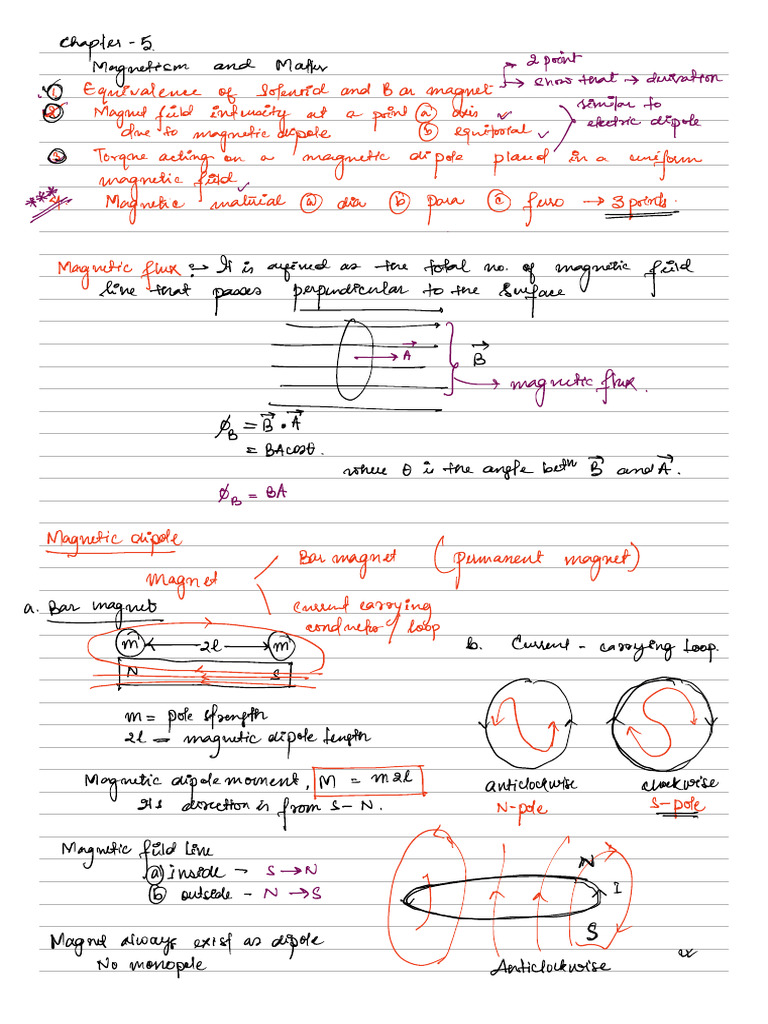 Chapter - 5.
Magnetism and Matter
① Equivalence of Solenoid and Bar magnet
→ 2 point
→ show that → derivation
② Magnet field intensity at a point ⓐ axis ✓
due to magnetic dipole ⓑ equitorial ✓
similar to
electric dipole
③ Torque acting on a magnetic dipole placed in a uniform
magnetic field ✓
*** 4. Magnetic material ⓐ dia ⓑ para ⓒ ferro → 3 points.
Magnetic flux :→ It is defined as the total no. of magnetic field
line that passes perpendicular to the Surface
A
B
→ magnetic flux.
ϕB = B • A
= BA cosθ.
where θ is the angle betn B and A.
ϕB = BA
Magnetic dipole
Magnet
Bar magnet (permanent magnet)
Current carrying
conductor/loop
a. Bar magnet
m ← 2l → m
N S
b. Current - carrying Loop.
m = pole strength
2l = magnetic dipole length
Magnetic dipole moment, M = m2l
Its direction is from S - N.
anticlockwise
N-pole
clockwise
S-pole
Magnetic field line
ⓐ inside → S → N
ⓑ outside - N → S
N
I
S
Magnet always exist as dipole
No monopole
Anticlockwise